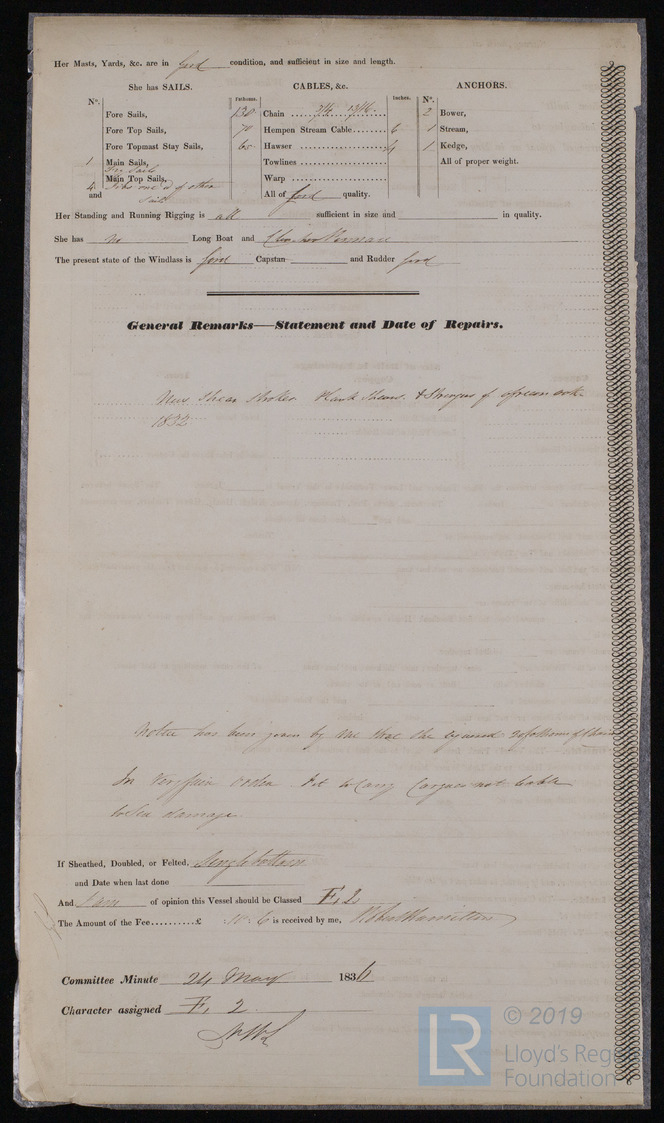 Her Masts, Yards, &c. are in good condition, and sufficient in size and length.
She has SAILS. CABLES, &c. ANCHORS.
N°. Fathoms. Inches. N°.
Fore Sails, 130 Chain 2 Bower,
Fore Top Sails, 70 Hempen Stream Cable 6 1 Stream,
Fore Topmast Stay Sails, 60 Hawser 4 1 Kedge,
1 Main Sails, Towlines All of proper weight.
Try Sails
Main Top Sails, Warp
4 Jibs one of other
and Sails All of good quality.
Her Standing and Running Rigging is all sufficient in size and in quality.
She has no Long Boat and
The present state of the Windlass is good Capstan and Rudder good
General Remarks—Statement and Date of Repairs.
New Shear Strokes Plank Shear & Stringers of
1832
Notice has been given by me that the
In very fair order fit to Carry Cargoes not liable
to Sea damage
If Sheathed, Doubled, or Felted, Single bottom
and Date when last done
And I am of opinion this Vessel should be Classed F. 2
The Amount of the Fee..........£ 10. 6 is received by me, Robert Hamilton
Committee Minute 24 May 1834
Character assigned F. 2
LR © 2019
Lloyd's Register
Foundation